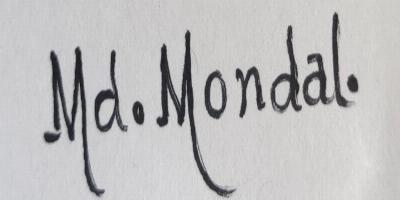 Md. Mondal.